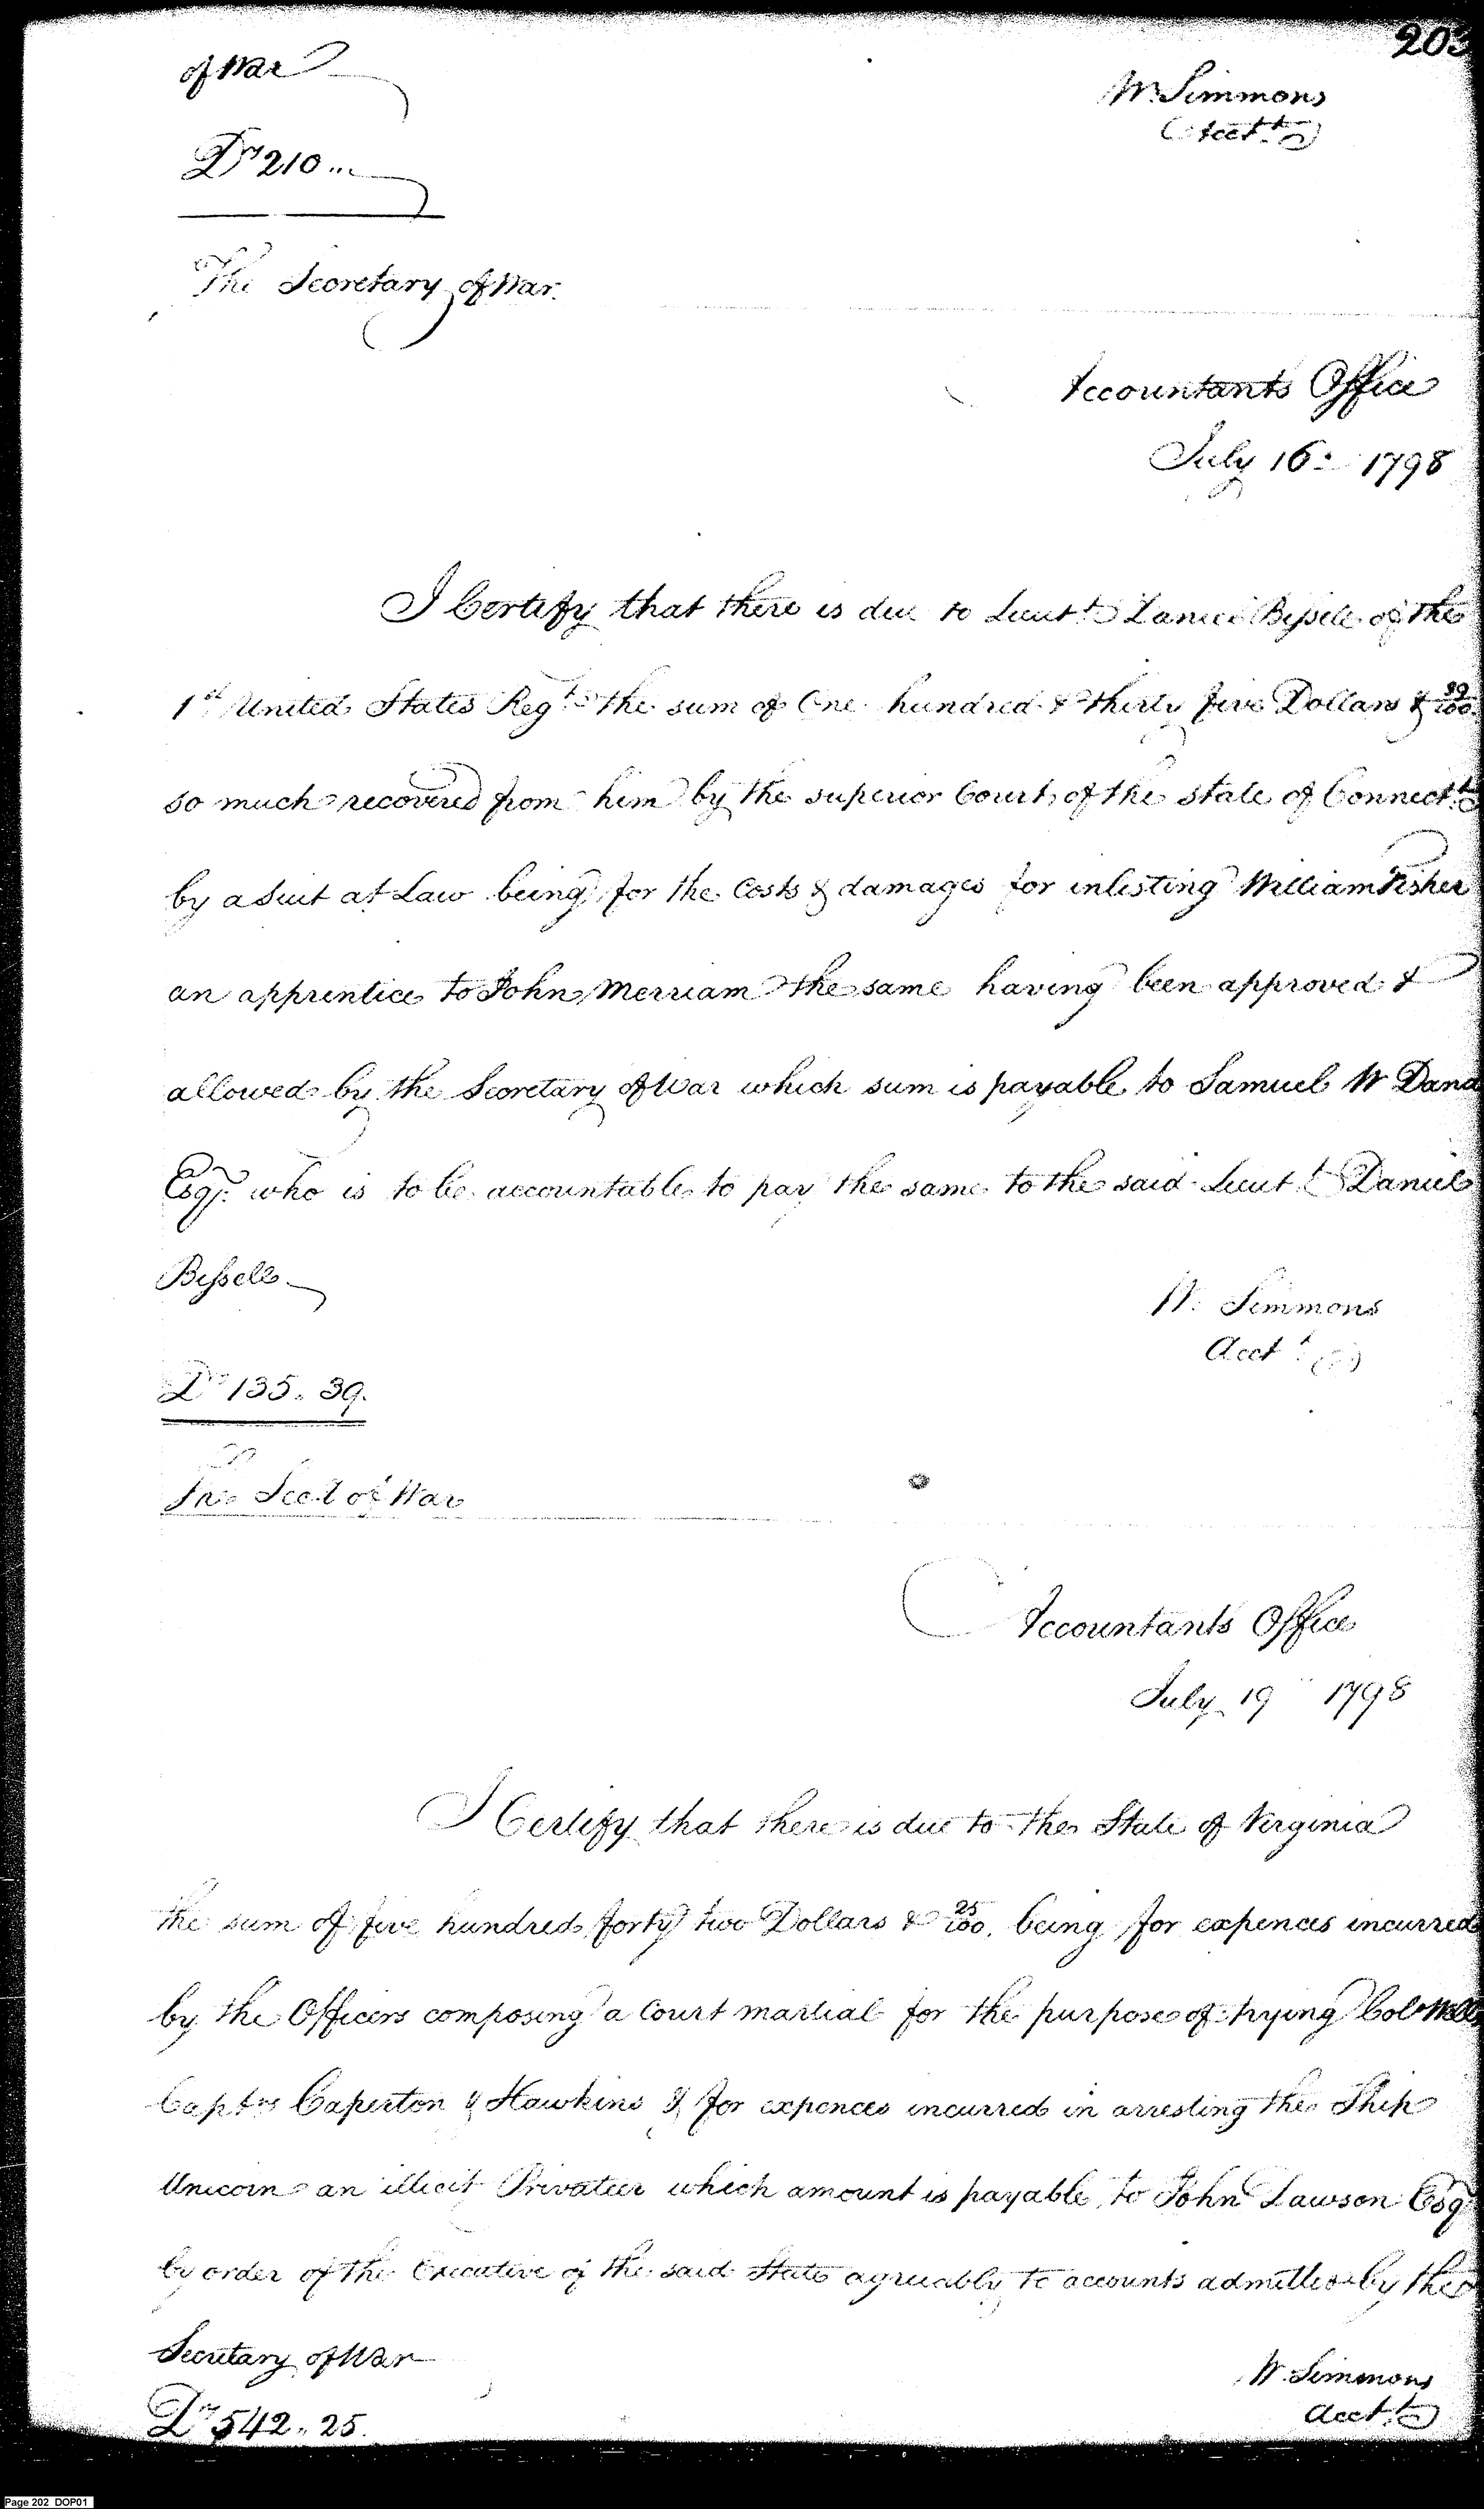 203
of War
W. Simmons
Acct.t
Drs 210 ...
The Secretary of War.
Accountants Office
July 16: 1798
I Certify that there is due to Lieut.t Daniel Bissell of the
1st United States Reg.t the sum of One hundred & thirty five Dollars & 39/100
so much recovered from him by the superior Court of the state of Connect.t
by a Suit at Law being for the Costs & damages for inlisting William Fisher
an apprentice to John Merriam the same having been approved &
allowed by the Secretary of War which sum is payable to Samuel W Dana
Esqr. who is to be accountable to pay the same to the said Lieut.t Daniel
Bissell
W. Simmons
Acct.t
Drs 135. 39.
The Sec.t of War
Accountants Office
July 19 1798
I Certify that there is due to the State of Virginia
the sum of five hundred forty two Dollars & 25/100. being for expences incurred
by the Officers composing a Court martial for the purpose of trying Col.
Capt.ns Caperton & Hawkins & for expences incurred in arresting the Ship
Unicorn an illicit Privateer which amount is payable to John Lawson Esq
by order of the Executive of the said State agreeably to accounts admitted by the
Secretary of War
W. Simmons
Acct.t
Drs 542. 25.
Page 202 DOP01